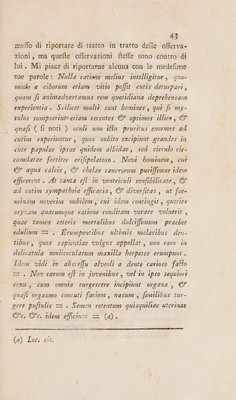 43
messo di riportare di tratto in tratto delle osserva-
zioni, ma queste osservazioni stesse sono contro di
lui. Mi piace di riportarne alcuna con le medesime
sue parole: Nulla ratione melius intelligitur, quo-
modo a ciborum etiam vitio possit cutis deturpari,
quam si animadvertamus rem quotidiana deprehensam
experientia. Scilicet multi sunt homines, qui si my-
tulos sumpserint etiam recentes & optimos illico, &
quasi (si noti) oculi uno ictu pruritus enormes ad
cutim experiuntur, quos subito excipiunt grandes in
cute papulae ipsae quidem albidae, sed circulo cir-
cumdatae fortiter erisipelatoso. Novi hominem, cui
& aqua calcis, & chelae cancrorum purissimae idem
efficerent. At tanta est in ventriculi sensibilitate, &
ad cutim sympatheia efficacia, & diversitas, ut foe-
minam noverim nobilem, cui idem contingit, quoties
oryzam quacumque ratione conditam vorare voluerit,
quae tamen ceteris mortalibus dulcissimum praebet
edulium =. Erumpentibus ultimis molaribus den-
tibus, quos sapientiae vulgus appellat, non raro in
delicatula muliercularum maxilla herpetes erumpunt.
Idem vidi in abscessu alveoli a dente carioso facto
=. Non rarum est in juvenibus, vel in ipso sequiori
sexu, cum omnia turgescere incipiunt organa, &
quasi orgasmo concuti faciem, nasum, similibus tur-
gere pustulis =. Semen retentum quisquiliae uterinae
&c. &c. idem efficiunt = (a).
(a) Loc. cit.